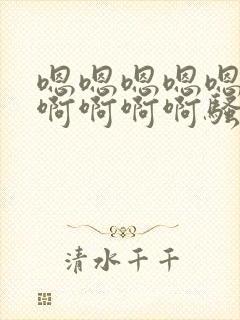 嗯嗯嗯嗯嗯
啊啊啊啊骚
清水千千